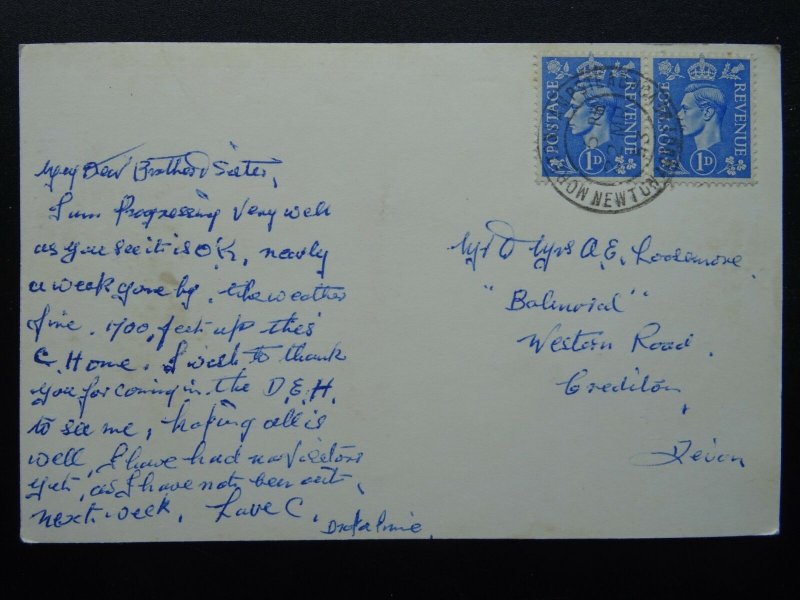 My Dear Brother & Sister,
I am Progressing Very well
as you see it is O'K, nearly
a week gone by, the weather
fine. 1700, feet up this
C. Home. I wish to thank
you for coming in the D.E.H.
to see me, hoping all is
well, I have had no Visitors
yet, as I have not been out,
next week, Love C.
Mr & Mrs A.E. Loosemore
"Balmoral"
Western Road.
Crediton
Devon
POSTAGE REVENUE
1D
POSTAGE REVENUE
1D
NEWTON